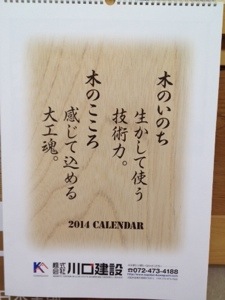 木のいのち
生かして使う
技術力。
木のこころ
感じて込める
大工魂。
2014 CALENDAR
株式会社 川口建設
072-473-4188